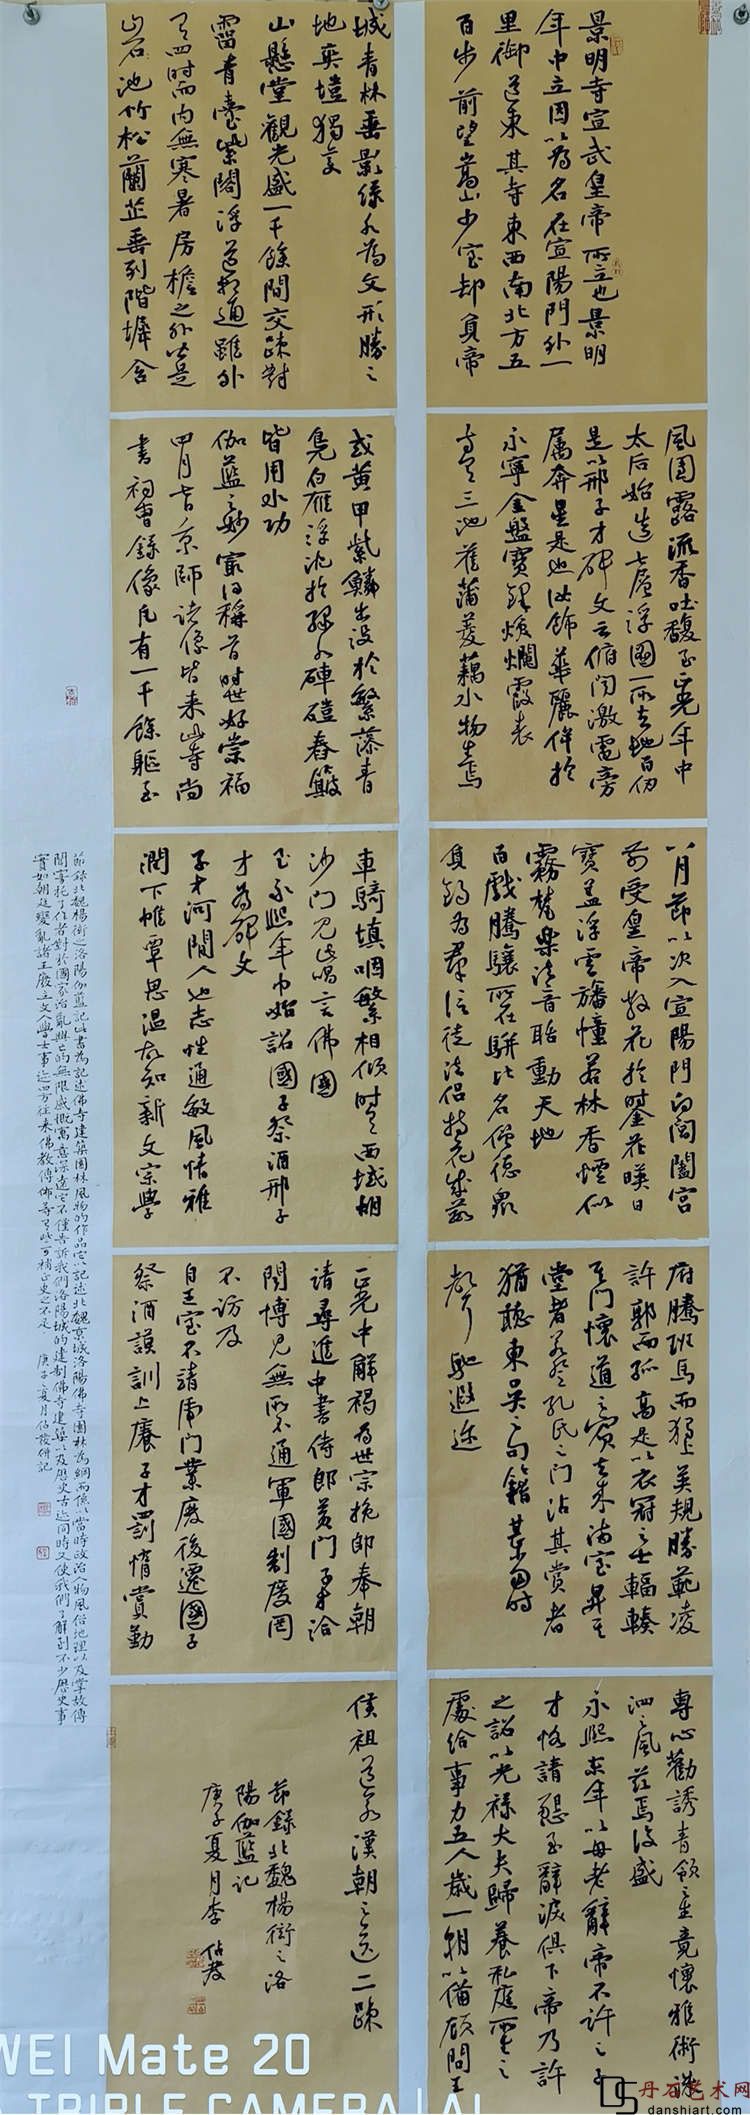 景明寺宣武皇帝所立也景明
年中立因以為名在宣陽門外一
里御道東其寺東西南北方五
百步前望嵩山少室却負帝
城青林垂影綠水為文形勝之
地爽塏獨美
山懸堂觀光盛一千餘間交疎對
霤青臺紫閣浮道相通雖外
有四時而內無寒暑房檐之外皆是
山石池竹松蘭芷垂列階墀含
風團露流香吐馥至正光年中
太后始造七層浮圖一所去地百仞
是以邢子才碑文云俯聞激電旁
屬奔星是也妝飾華麗侔於
永寧金盤寶鐸煥爛霞表
寺有三池萑蒲菱藕水物生焉
或黃甲紫鱗出没於繁藻青
鳧白雁浮沈於綠水硨磑舂簸
皆用水功
伽藍之妙最得稱首時世好崇福
四月七日京師諸像皆來此寺尚
書祠曹錄像凡有一千餘軀至
八月節以次入宣陽門向閶闔宮
前受皇帝散花於時金花映日
寶蓋浮雲旛幢若林香煙似
霧梵樂法音聒動天地
百戲騰驤所在駢比名僧德眾
負錫為群信徒法侶持花成藪
車騎填咽繁相傾時有西域胡
沙門見此唱言佛國
至永熙年中始詔國子祭酒邢子
才為碑文
子才河間人也志性通敏風情雅
潤下帷覃思溫故知新文宗學
府騰班馬而孤上英規勝範凌
許郭而孤高是以衣冠之士輻輳
其門懷道之賓去來滿室昇其
堂者若登孔氏之門沾其賞者
猶聽東吳之句籍甚當時
聲馳遐迩
正光中解褐為世宗挽郎奉朝
請尋進中書侍郎黃門子才洽
聞博見無所不通軍國制度罔
不訪及
自王室不靖虎門業廢後遷國子
祭酒謨訓上庠子才罰惰賞勤
專心勸誘青領之生竟懷雅術洙
泗之風茲焉復盛
永熙末年以母老辭帝不許之子
才恪請懇至辭淚俱下帝乃許
之詔以光祿大夫歸養私庭所在之
處給事力五人歲一朝以備顧問王
侯祖道若漢朝之送二疎
節錄北魏楊衒之洛
陽伽藍記
庚子夏月李佔發
節錄北魏楊衒之洛陽伽藍記此書為記述佛寺建築園林風物的作品它以記述北魏京城洛陽佛寺園林為綱而係以當時政治人物風俗地理以及掌故傳
聞寄托了作者對於國家治亂興亡的無限感慨寓意深遠它不僅告訴我們洛陽城的建制佛寺建築以及歷史古迹同時又使我們了解到不少歷史事
實如朝廷變亂諸王廢立文人學士事迹四方往來佛教傳佈等有些可補正史之不足 庚子夏月佔發併記
WEI Mate 20
TRIPLE CAMERA | AI
丹石艺术网
danshiart.com